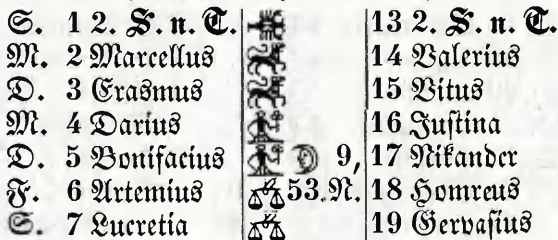 S. 1 2. S. n. T. 13 2. S. n. T.
M. 2 Marcellus 14 Valerius
D. 3 Erasmus 15 Vitus
M. 4 Darius 16 Justina
D. 5 Bonifacius 9, 17 Nikander
F. 6 Artemius 53. N. 18 Homreus
S. 7 Lucretia 19 Gervasius